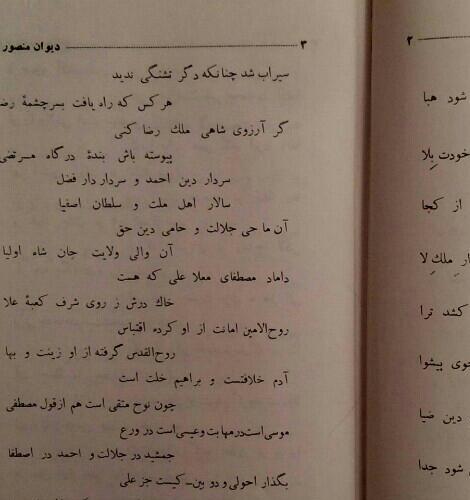 ۳ دیوان منصور
سیراب شد چنانکه دگر تشنگی ندید
هر کس که راه یافت بسرچشمهٔ رضا
گر آرزوی شاهی ملك رضا کنی
پیوسته باش بندهٔ درگاه مرتضی
سردار دین احمد و سردار دار فضل
سالار اهل ملت و سلطان اصفیا
آن ماحی جلالت و حامی دین حق
آن والی ولایت جان شاه اولیا
داماد مصطفای معلا علی که هست
خاك درش ز روی شرف کعبهٔ علا
روح‌الامین امانت از او کرده اقتباس
روح‌القدس گرفته از او زینت و بها
آدم خلافتست و براهیم خلت است
چون نوح متقی است هم از قول مصطفی
موسی است در مهابت و عیسی است در ورع
جمشید در جلالت و احمد در اصطفا
بگذار احولی و دو بین کیست جز علی
۲
شود هبا
خودت بِلا
از کجا
ملكِ لا
کشد ترا
جوی پیشوا
دین ضیا
شود جدا